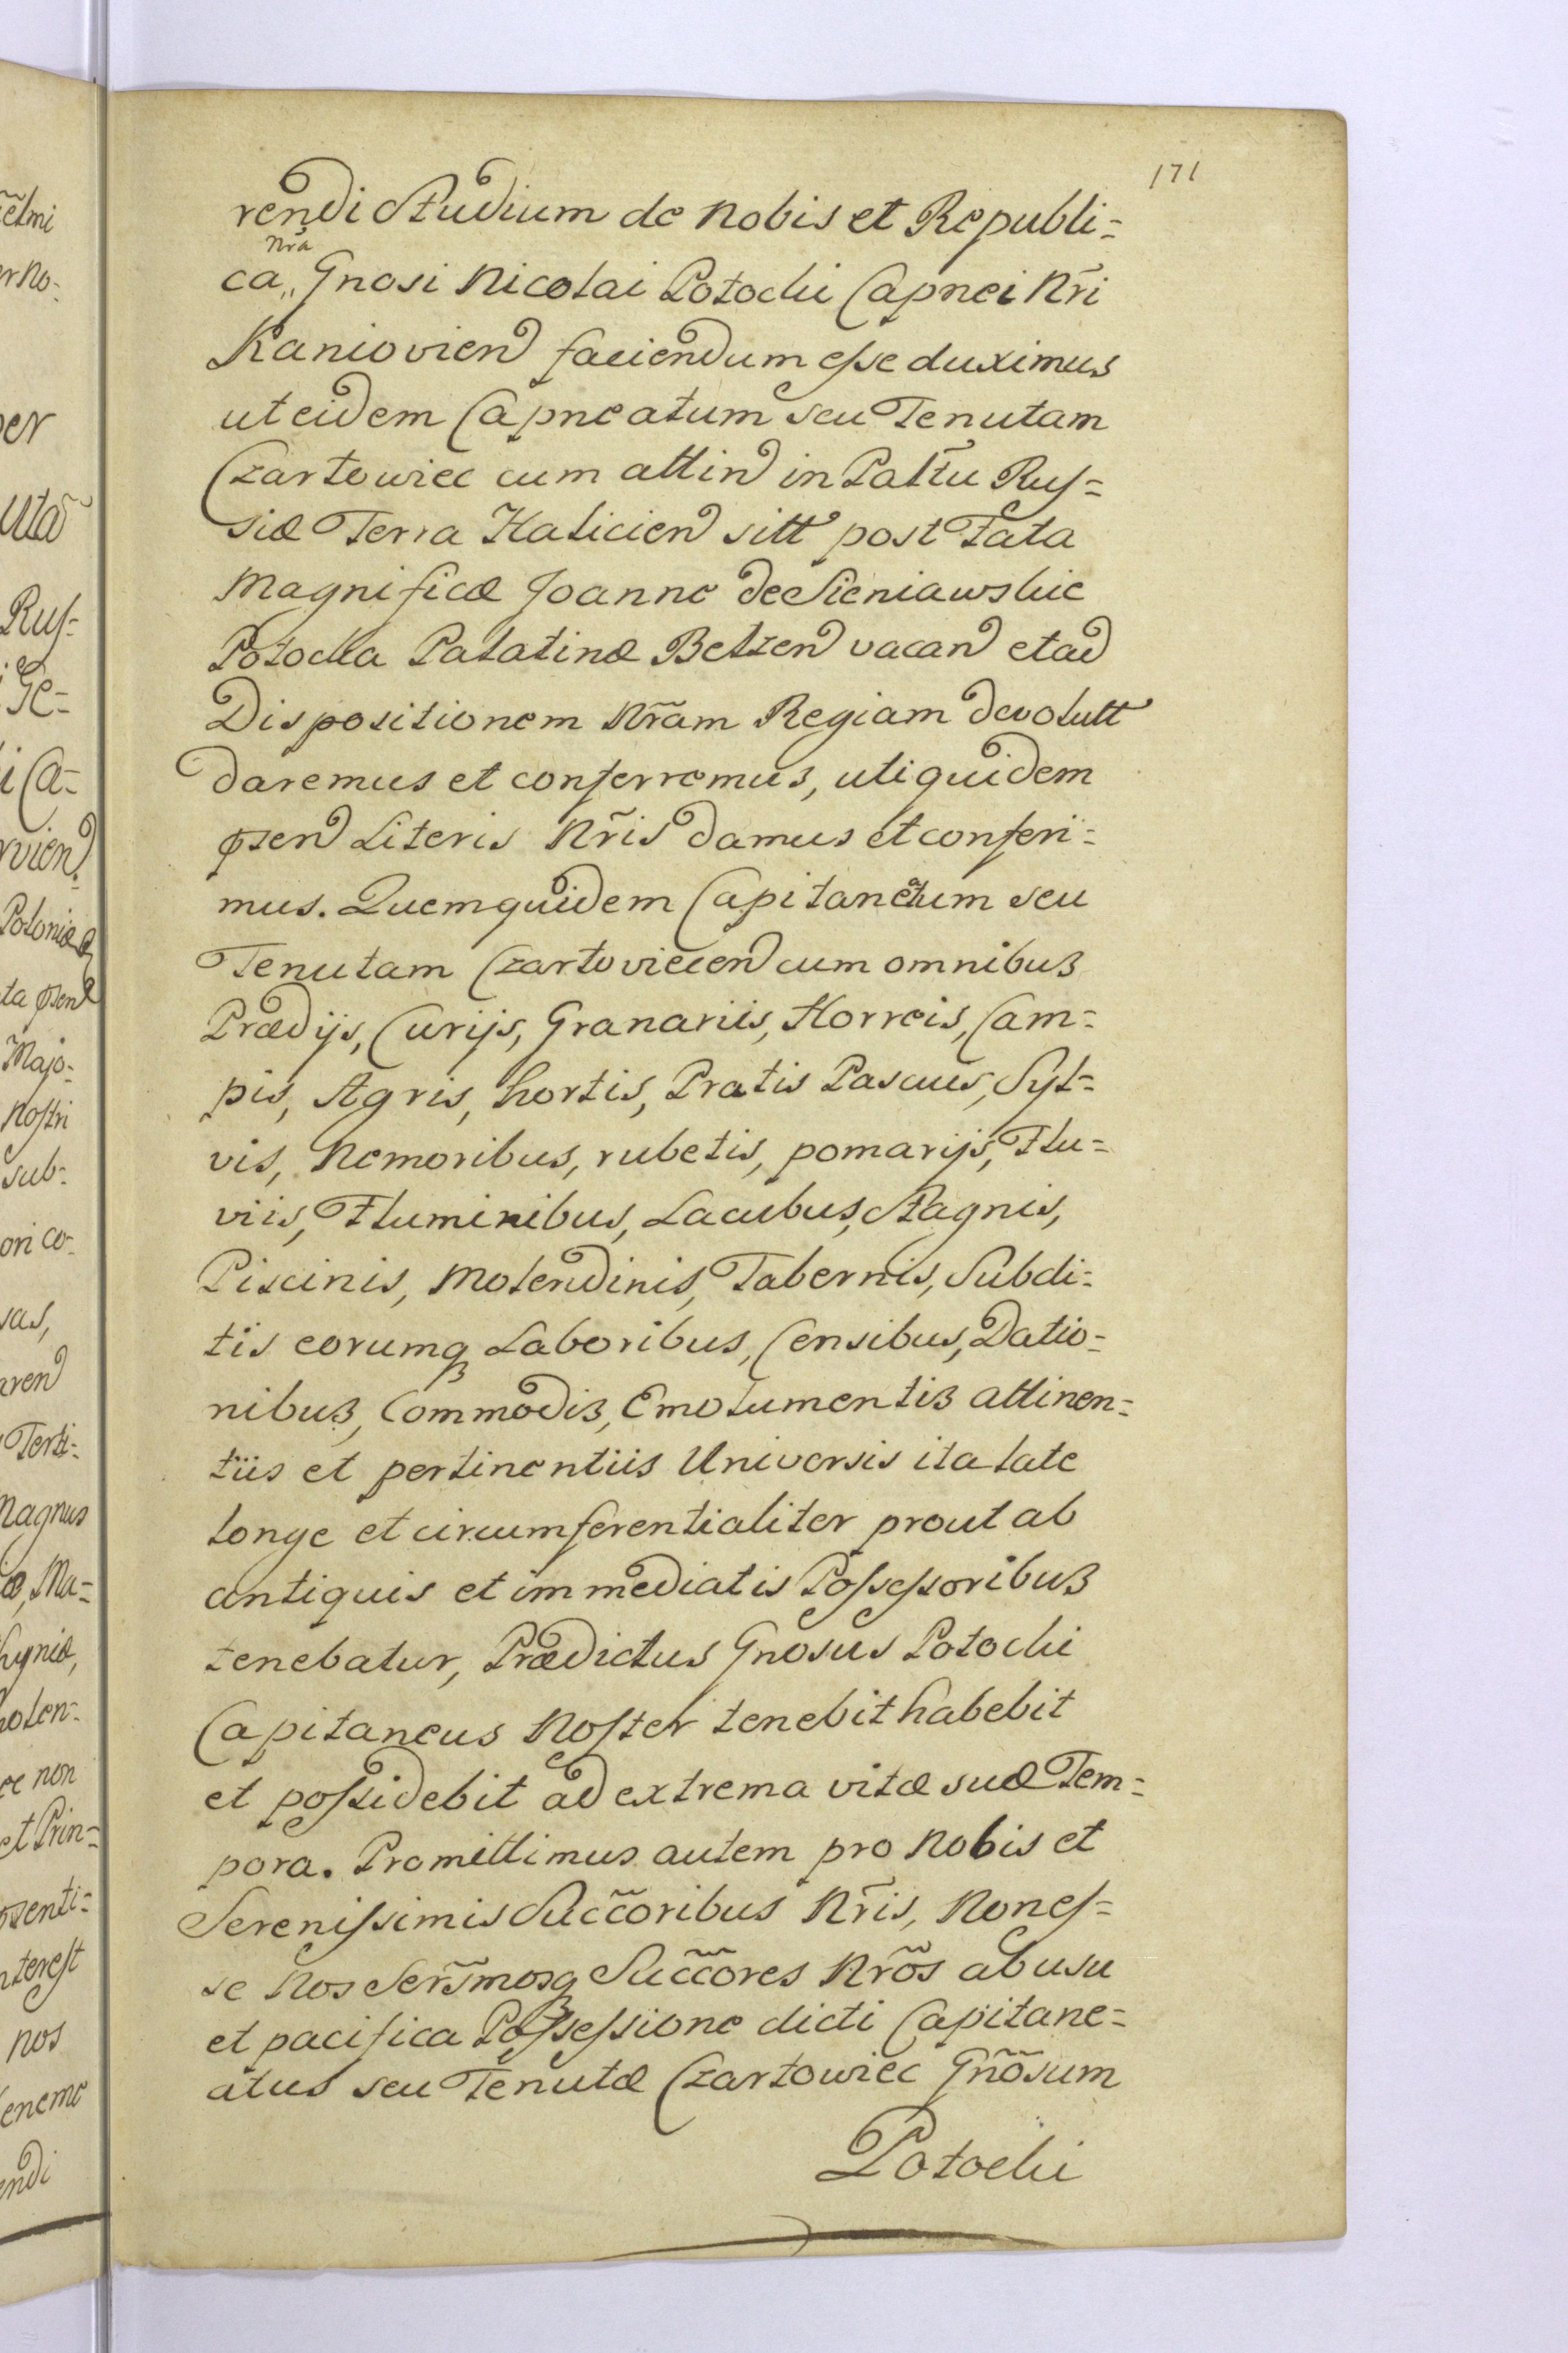 171
rendi Studium de Nobis et Republi=
nrã
ca,, Gnosi Nicolai Potocki Capnei Nr̃i
Kaniovien faciendum esse duximus
ut eidem Capneatum seu Tenutam
Czartowiec cum attin in Palt̃u Rus=
siæ Terra Halicien sitt post Fata
Magnificæ Joanne de Sieniawskie
Potocka Palatinæ Belzen vacan et ad
Dispositionem Nr̃am Regiam devolutt
daremus et conferremus, uti quidem
præsen Literis Nr̃is damus et conferi=
mus. Quemquidem Capitanetum seu
Tenutam Czartoviecen cum omnibus
Prædijs, Curijs, Granariis, Horreis, Cam=
pis, Agris, hortis, Pratis Pascuis, Syl=
vis, Nemoribus, rubetis, pomarijs, Flu=
viis, Fluminibus, Lacubus, Stagnis,
Piscinis, Molendinis, Tabernis, Subdi=
tis eorumq Laboribus, Censibus, Datio=
nibus, Commodis, Emolumentis attinen=
tiis et pertinentiis Universis ita late
longe et circumferentialiter prout ab
antiquis et immediatis Possessoribus
tenebatur, Prædictus Gnosus Potocki
Capitaneus Noster tenebit habebit
et possidebit ad extrema vitæ suæ Tem=
pora. Promittimus autem pro Nobis et
Serenissimis Succ̃oribus Nr̃is, Non es=
se Nos Sers̃mosq Succ̃ores Nr̃os ab usu
et pacifica Possessione dicti Capitane=
atus seu Tenutæ Czartowiec Gnõsum
Potocki